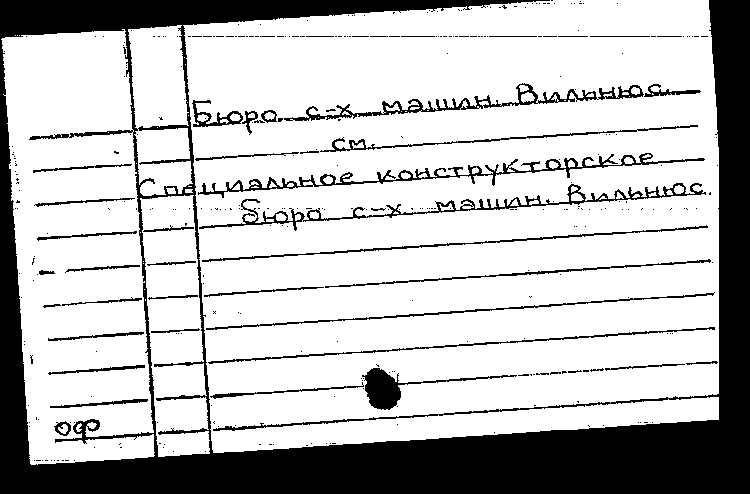 Бюро с-х машин. Вильнюс.
см.
Специальное конструкторское
бюро с-х машин. Вильнюс.
оф